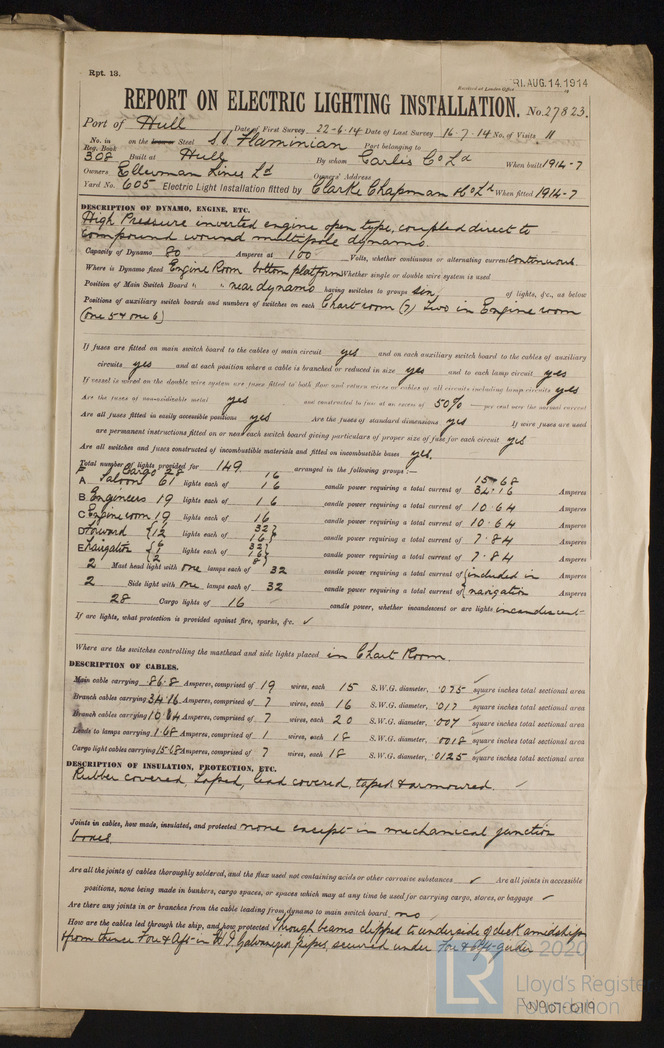 Rpt. 13.
FRI. AUG. 14. 1914
Received at London Office
REPORT ON ELECTRIC LIGHTING INSTALLATION. No. 27823.
Port of Hull Date of First Survey 22-6-14 Date of Last Survey 16-7-14 No. of Visits 11
No. in Reg. Book 308 on the Iron or Steel S.S. Flaminian Port belonging to
Built at Hull By whom Earle's Co Ld When built 1914-7
Owners Ellerman Lines Ld Owners' Address
Yard No. 605 Electric Light Installation fitted by Clarke Chapman & Co Ld When fitted 1914-7
DESCRIPTION OF DYNAMO, ENGINE, ETC.
High Pressure inverted engine open type, coupled direct to
compound wound multipole dynamo.
Capacity of Dynamo 80 Amperes at 100 Volts, whether continuous or alternating current Continuous
Where is Dynamo fixed Engine Room bottom platform Whether single or double wire system is used
Position of Main Switch Board " " near dynamo having switches to groups six of lights, &c., as below
Positions of auxiliary switch boards and numbers of switches on each Chart room (7) Two in Engine room
(one 5 & one 6)
If fuses are fitted on main switch board to the cables of main circuit yes and on each auxiliary switch board to the cables of auxiliary
circuits yes and at each position where a cable is branched or reduced in size yes and to each lamp circuit yes
If vessel is wired on the double wire system are fuses fitted to both flow and return wires or cables of all circuits including lamp circuits yes
Are the fuses of non-oxidizable metal yes and constructed to fuse at an excess of 50% per cent over the normal current
Are all fuses fitted in easily accessible positions yes Are the fuses of standard dimensions yes If wire fuses are used
are permanent instructions fitted on or near each switch board giving particulars of proper size of fuse for each circuit yes
Are all switches and fuses constructed of incombustible materials and fitted on incombustible bases yes.
Total number of lights provided for 149 arranged in the following groups :—
F Cargo 28 16 15.68
A Saloon 61 lights each of 16 candle power requiring a total current of 34.16 Amperes
B Engineers 19 lights each of 16 candle power requiring a total current of 10.64 Amperes
C Engine room 19 lights each of 16 candle power requiring a total current of 10.64 Amperes
D Forward {12 lights each of 32} 16} candle power requiring a total current of 7.84 Amperes
E Navigation {6 {1 {2 lights each of 32} 16} 8} candle power requiring a total current of 7.84 Amperes
2 Mast head light with one lamps each of 32 candle power requiring a total current of {included in Amperes
2 Side light with one lamps each of 32 candle power requiring a total current of {navigation Amperes
28 Cargo lights of 16 candle power, whether incandescent or arc lights incandescent
If arc lights, what protection is provided against fire, sparks, &c. ✓
Where are the switches controlling the masthead and side lights placed in Chart Room.
DESCRIPTION OF CABLES.
Main cable carrying 86.8 Amperes, comprised of 19 wires, each 15 S.W.G. diameter, .075 square inches total sectional area
Branch cables carrying 34.16 Amperes, comprised of 7 wires, each 16 S.W.G. diameter, .017 square inches total sectional area
Branch cables carrying 10.64 Amperes, comprised of 7 wires, each 20 S.W.G. diameter, .007 square inches total sectional area
Leads to lamps carrying 1.68 Amperes, comprised of 1 wires, each 18 S.W.G. diameter, .0018 square inches total sectional area
Cargo light cables carrying 15.68 Amperes, comprised of 7 wires, each 18 S.W.G. diameter, .0125 square inches total sectional area
DESCRIPTION OF INSULATION, PROTECTION, ETC.
Rubber covered, Taped, lead covered, taped & armoured. ✓
Joints in cables, how made, insulated, and protected none except in mechanical junction
boxes.
Are all the joints of cables thoroughly soldered, and the flux used not containing acids or other corrosive substances ✓ Are all joints in accessible
positions, none being made in bunkers, cargo spaces, or spaces which may at any time be used for carrying cargo, stores, or baggage ✓
Are there any joints in or branches from the cable leading from dynamo to main switch board no
How are the cables led through the ship, and how protected Through beams clipped to underside of deck amidships
& from thence For & Aft in W.I. Galvanized pipes, secured under For & Aft girder
© 2020
LR
Lloyd's Register
Foundation
W907-0119